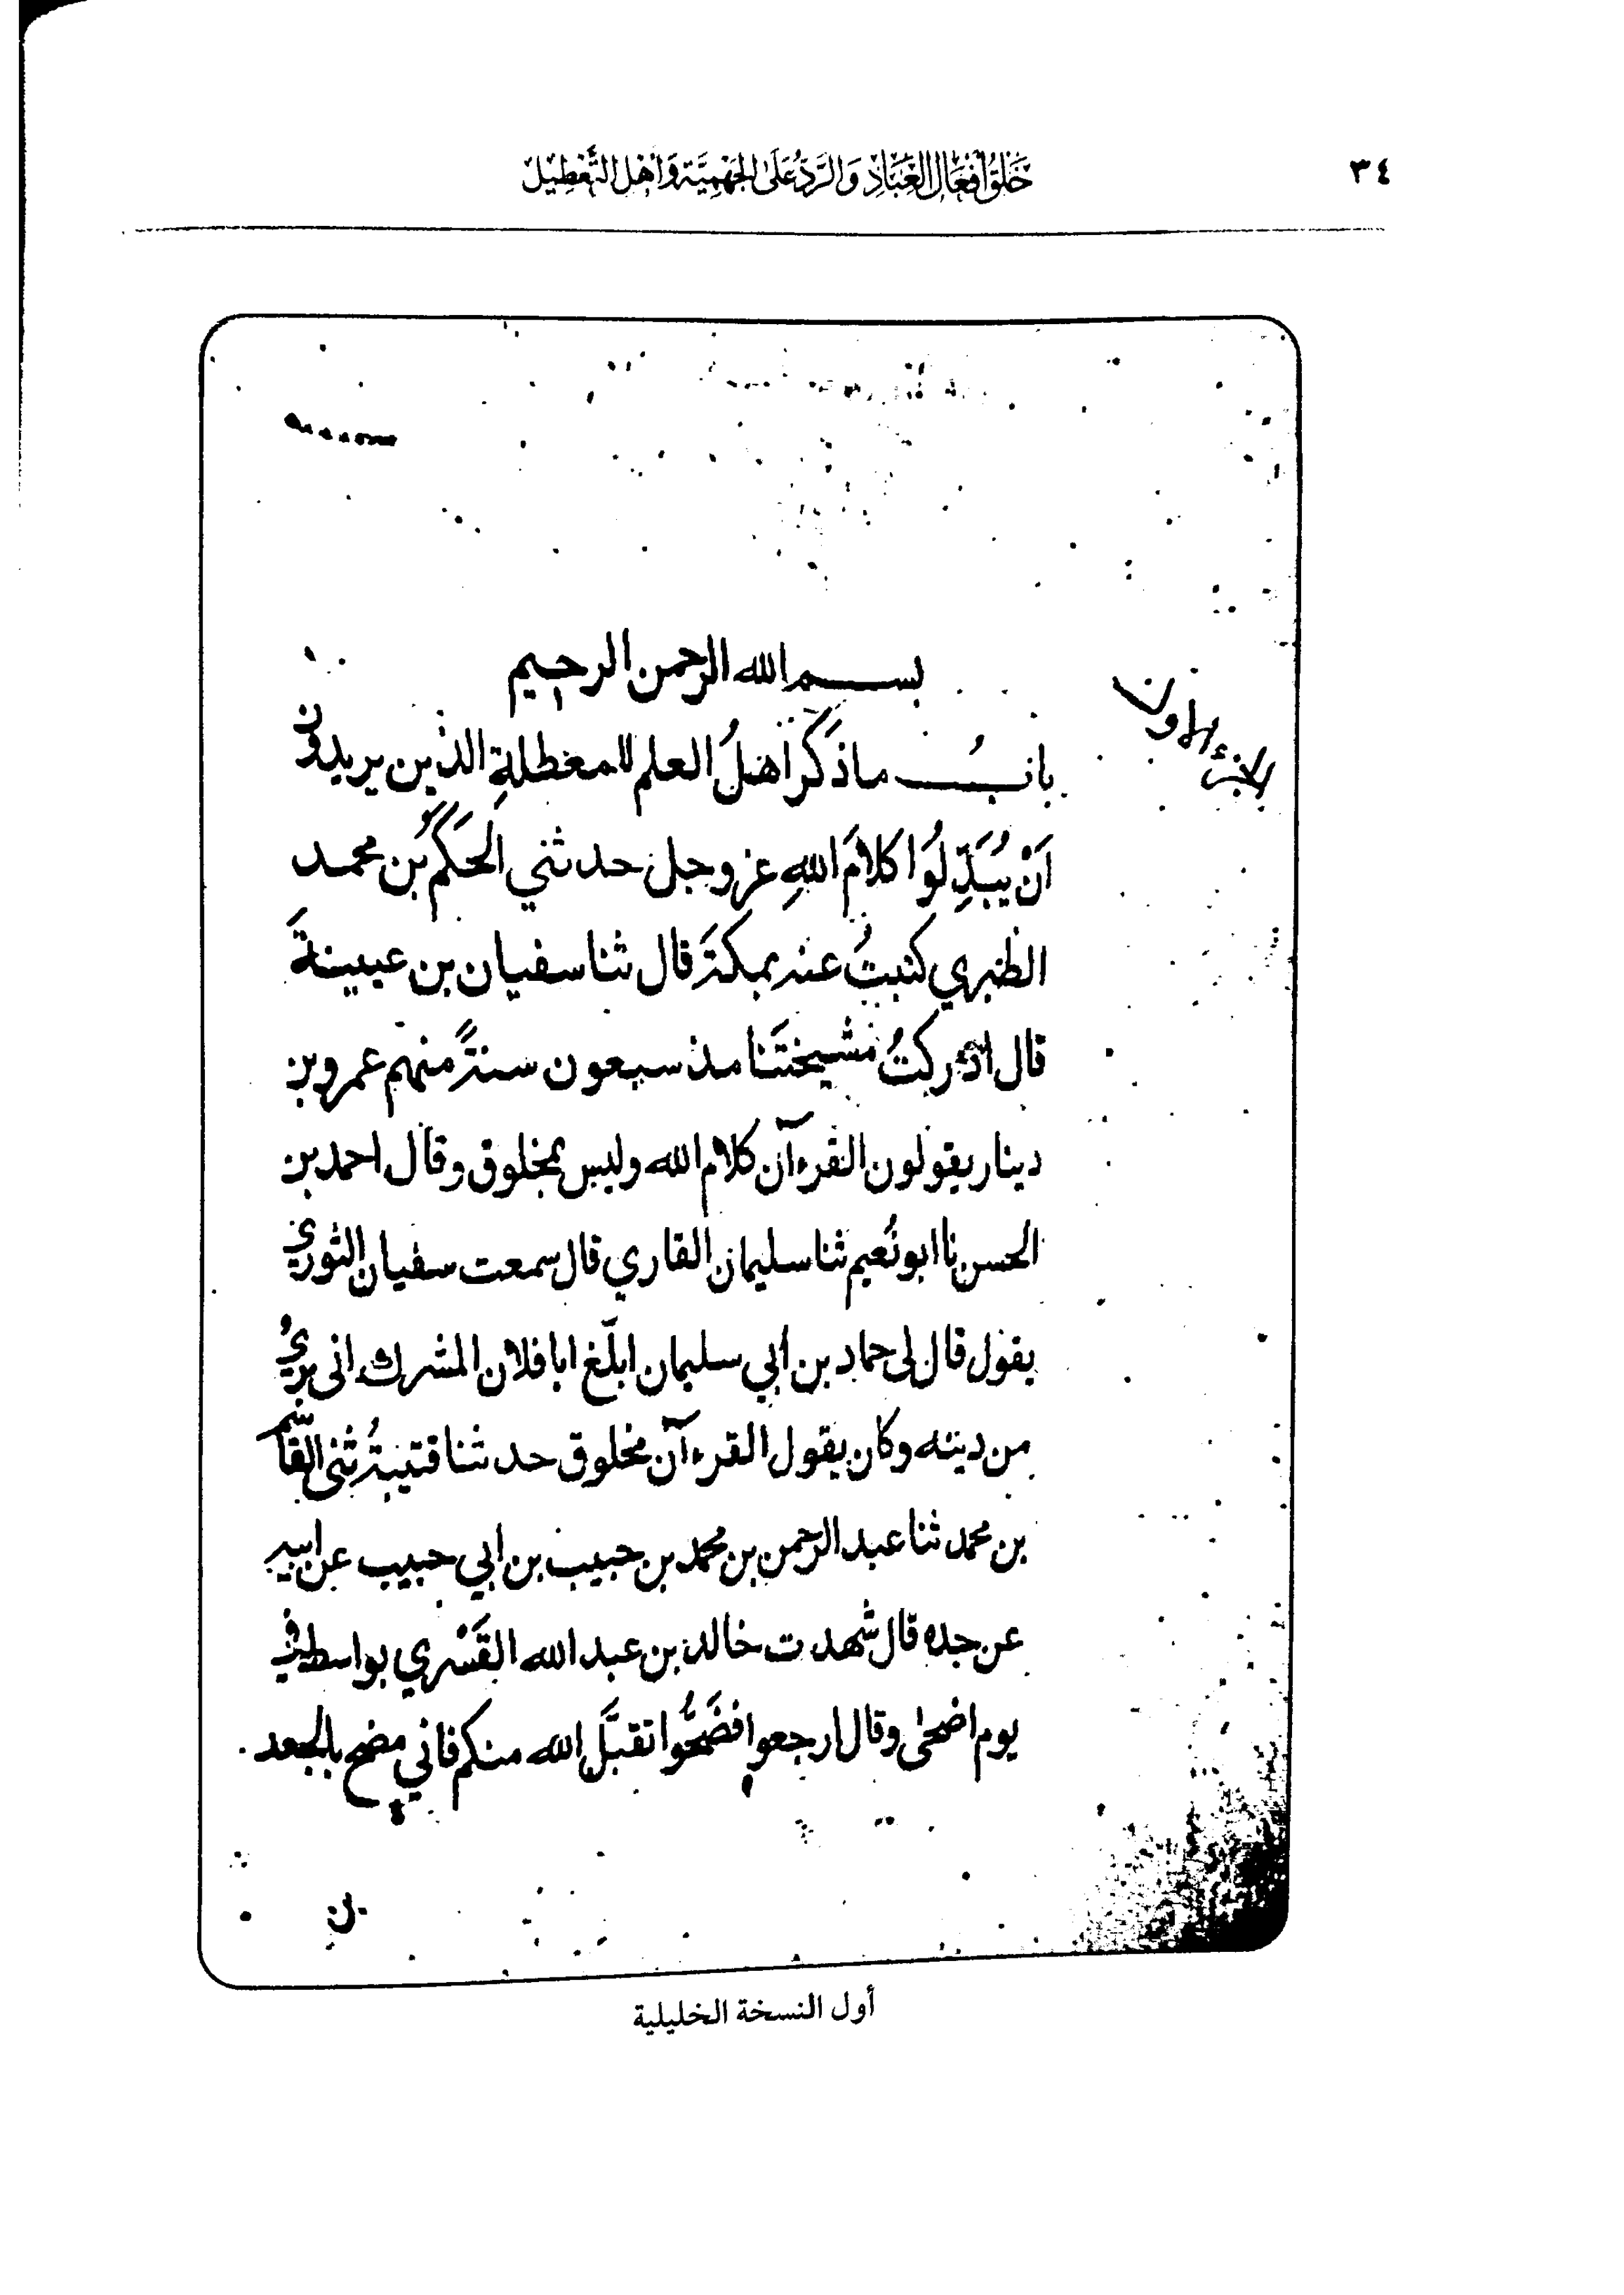 ٣٤
خَلْقُ أَفْعَالِ الْعِبَادِ وَالرَّدُّ عَلَى الْجَهْمِيَّةِ وَأَهْلِ التَّعْطِيلِ
بسم الله الرحمن الرحيم
الجزء الاول
بابُ ما ذكَرَ اهلُ العلم للمعطلةِ الذين يريدون
اَنْ يُبَدِّلُوا كلامَ اللهِ عز وجل حدثني الحَكَمُ بن محمد
الطبري كتبتُ عنه بمكةَ قال ثنا سفيان بن عيينةَ
قال ادركتُ مشيختَنا مذ سبعون سنةً منهم عمرو بن
دينار يقولون القرءآن كلام الله وليس بمخلوق وقال احمد بن
الحسن نا ابو نُعيم ثنا سليمان القاري قال سمعت سفيان الثوري
يقول قال لى حماد بن ابي سليمان ابلّغ ابا فلان المشرك انى بريُ
من دينه وكان يقول القرءآن مخلوق حدثنا قتيبةُ ثنى القاسم
بن محمد ثنا عبد الرحمن بن محمد بن حبيب بن ابي حبيب عن ابيه
عن جده قال شهدت خالد بن عبد الله القَسْري بواسط في
يوم اضحى وقال ارجعوا فضَحُّوا تقبَّل الله منكم فاني مضح بالجعد
بن
أول النسخة الخليلية